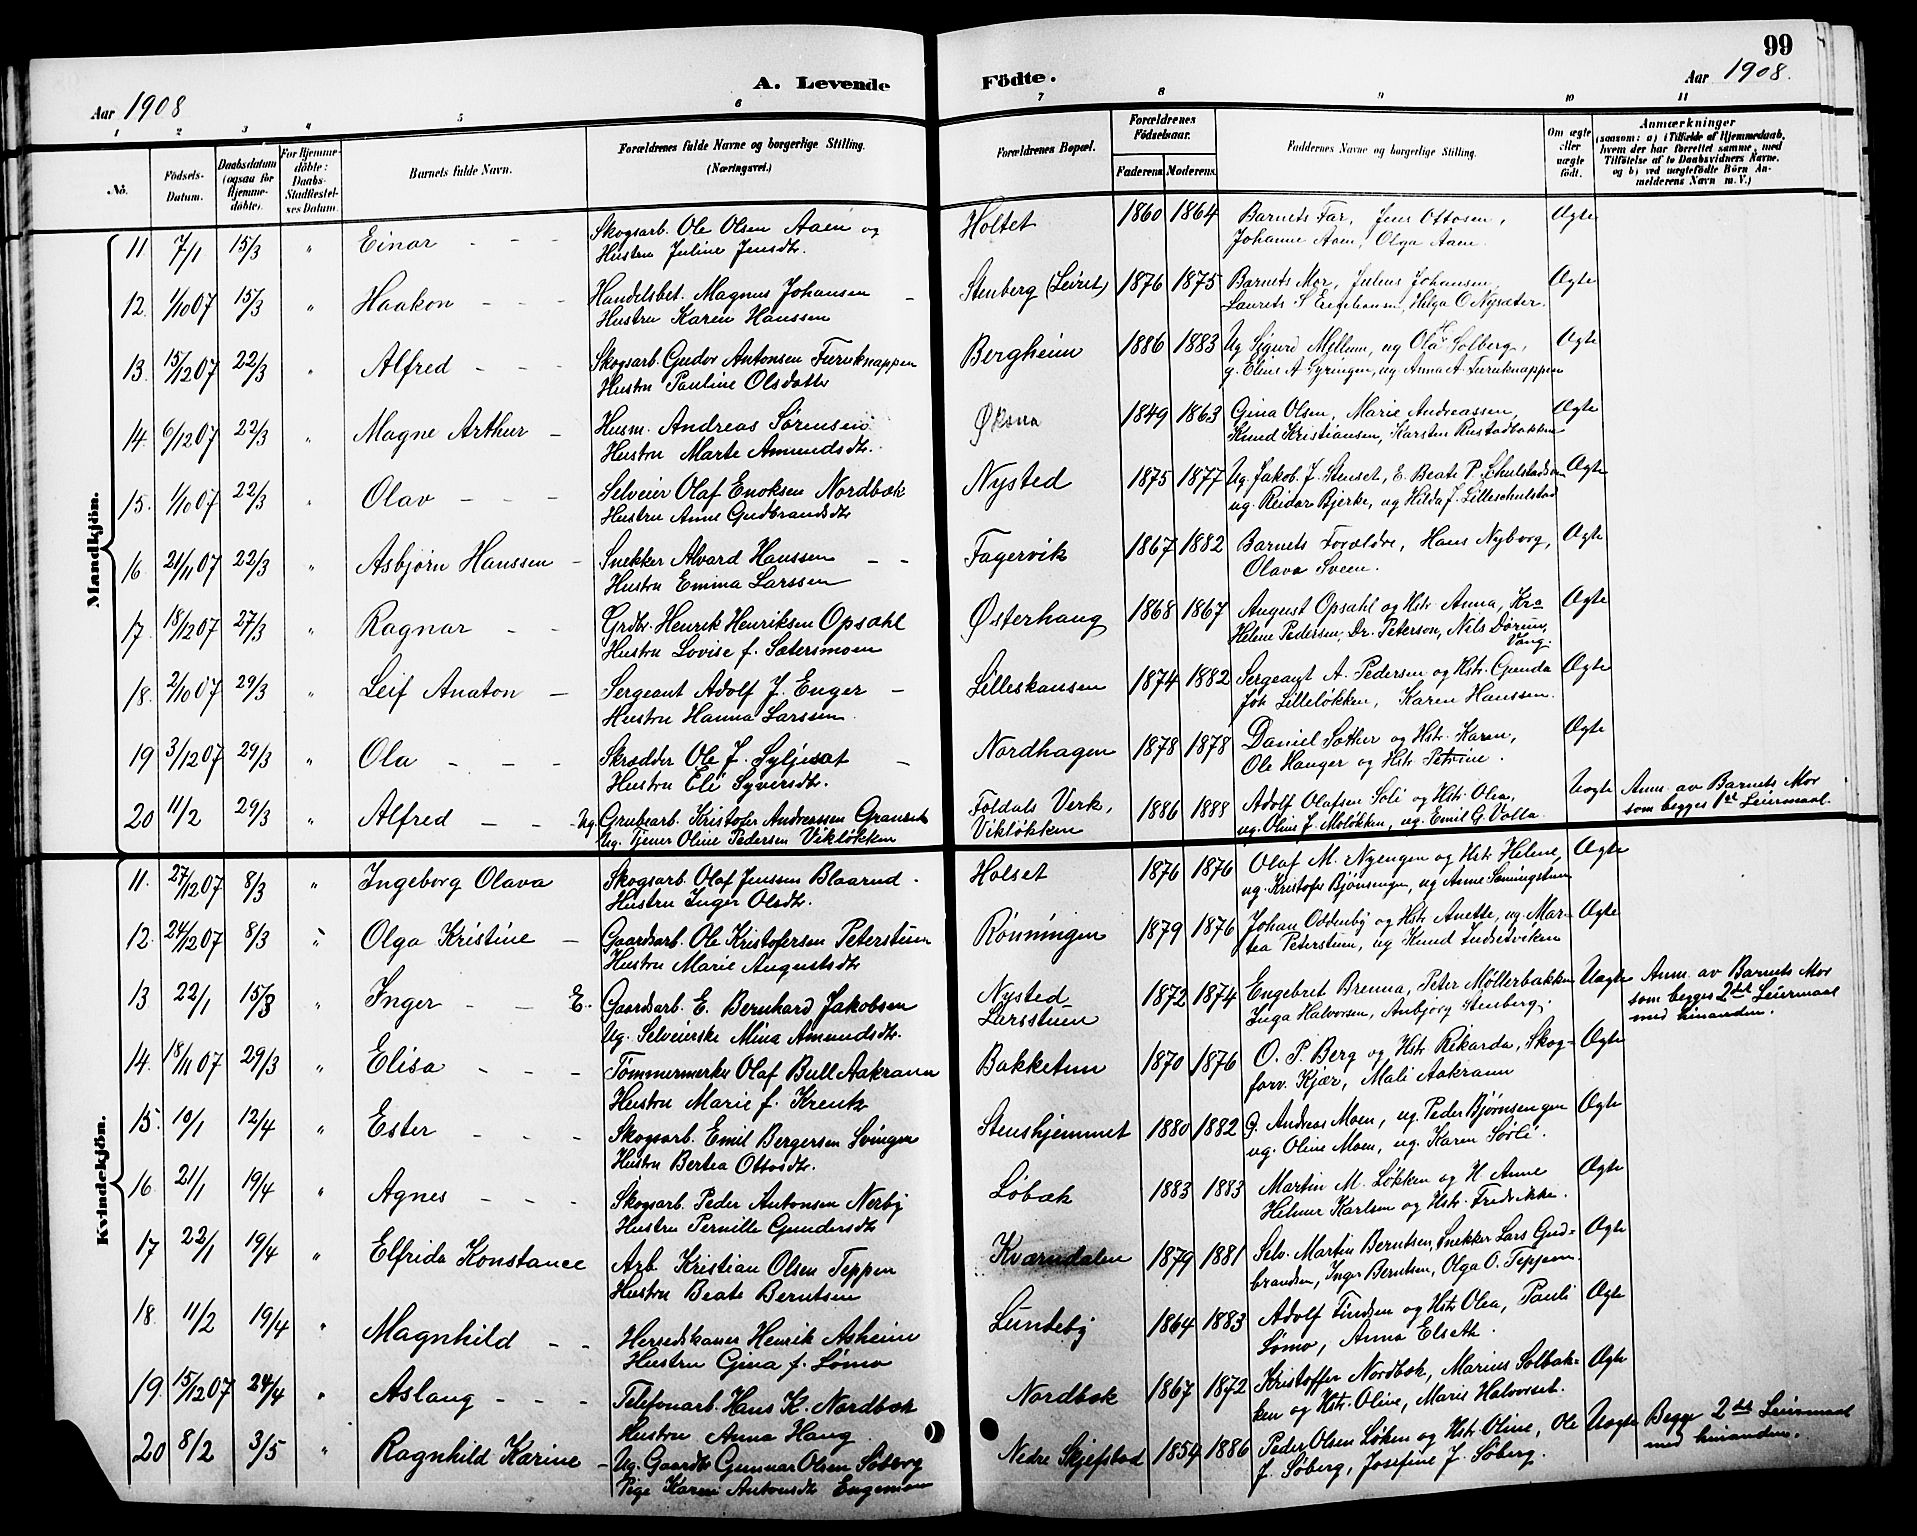 99
Aar 1908
A. Levende
Födte.
Aar 1908.
1 2 3 4 5 6 7 8 9 10 11
No.
Födsels-Datum.
Daabsdatum (ogsaa for Hjemme-döbte).
For Hjemme-döbte: Daabs-Stadfæstel-ses Datum.
Barnets fulde Navn.
Forældrenes fulde Navne og borgerlige Stilling. (Næringsvei.)
Forældrenes Bopæl.
Forældrenes Födselsaar.
Faderens. Moderens.
Faddernes Navne og borgerlige Stilling.
Om ægte eller uægte födt.
Anmærkninger
(saasom: a) i Tilfælde af Hjemmedaab, hvem der har forrettet samme, med Tilföielse af to Daabsvidners Navne, og b) ved uægtefödte Börn An-melderens Navn m. V.)
Mandkjön.
11. 7/1 15/3 " Einar - - - Skogsarb. Ole Olsen Aaen og Holtet 1860 1864 Barnets Far, Jens Ottosen, Ægte
Hustru Juline Jensdtr. Johanne Aaen, Olga Aaen.
12. 1/10 07 15/3 " Haakon - - - Handelsbet. Magnus Johansen - Stenberg (Leiret) 1876 1875 Barnets Mor, Julius Johansen, Ægte
Hustru Karen Hanssen Laurits S, Helga O Nysæter.
13. 15/12 07 22/3 " Alfred - - - Skogsarb. Gudor Antonsen Furuknappen Bergheim 1886 1883 Ug Sigurd Mellem, ug Ola Solberg, Ægte
Hustru Pauline Olsdatter g. Eline A Gyringen, ug Anna A. Furuknappen
14. 6/12 07 22/3 " Magne Arthur - Husm. Andreas Sørensen Øksna 1849 1863 Gina Olsen, Marie Andreassen, Ægte
Hustru Marte Amundsdtr. Knud Kristiansen, Karsten Rustadbakken
15. 1/10 07 22/3 " Olav - - - Selveier Olaf Enoksen Nordbæk Nysted 1875 1877 Ug. Jakob J. Stenset, E. Beate P. Skulstadsen Ægte
Hustru Anne Gudbrandsdtr ug. Reidar Bjerke, ug Hilda J. Lilleskulstad
16. 21/11 07 22/3 " Asbjørn Hanssen - Snekker Alvard Hanssen - - Fagervik 1867 1882 Barnets Forældre, Hans Nyborg, Ægte
Hustru Emma Larssen Olava Sveen.
17. 18/12 07 27/3 " Ragnar - - Grdbr. Henrik Henriksen Opsahl Østerhaug 1868 1867 August Opsahl og Hstr Anna, Kra Ægte
Hustru Lovise f. Sætersmoen Helene Pedersen, Dr. Peterson, Nils Dørum, Vang.
18. 2/10 07 29/3 " Leif Anaton - Sergeant Adolf J. Enger - Lilleskansen 1874 1882 Sergeant A. Pedersen og Hstr. Gunda Ægte
Hustru Hanna Larssen. Joh Lilleløkken, Karen Hanssen.
19 3/12 07 29/3 " Ola - - - Skrædder Ole J. Syljesæt - Nordhagen 1878 1878 Daniel Sæther og Hstr. Karen, Ægte
Hustru Eli Syversdtr. Ole Hanger og Hstr Petrine.
20 11/2 29/3 " Alfred - - - Ug. Grubearb. Kristofer Andreassen Granset Foldals Verk, 1886 1888 Adolf Olafsen Sole og Hstr. Olea, Uægte Anm. av Barnets Mor
Ug. Tjener Oline Pedersen Vikløkken Vikløkken ug. Oline J. Moløkken, ug. Emil G. Volla. som begges 1ste Leiermaal.
Kvindekjön.
11. 27/12 07 8/3 " Ingeborg Olava Skogsarb. Olaf Jenssen Blaarud. Holset 1876 1876 Olaf M. Nyengen og Hstr Helene, Ægte
Hustru Inger Olsdtr. ug. Kristofer Bjønsengen, ug Anne
12. 24/12 07 8/3 " Olga Kristine - Gaardsarb. Ole Kristofersen Peterstuen Rønningen 1879 1876 Johan Oddenby og Hstr Anette, ug. Mar- Ægte
Hustru Marie Augustsdtr tea Peterstuen, ug Knud Indsetviken
13 22/1 15/3 " Inger - - E. Gaardsarb. E. Bernhard Jakobsen Nysted 1872 1874 Engebret Brenna, Peter Møllerbakken Uægte Anm. av Barnets Mor
Ug. Selveierske Mina Amundsdtr. Larsstuen Inga Halvorsen, Anbjørg Stenberg. som begges 2det Leiermaal
med hinanden.
14. 18/11 07 29/3 " Elisa - - - Tømmermerker Olaf Bull Aakrann Bakketun 1870 1876 O. P. Berg og Hstr Rikarda, Skog- Ægte
Hustru Marie f. Krentz forv. Kjær, Mali Aakrann
15. 10/1 12/4 " Ester - - - Skogsarb. Emil Bergersen Svingen Stenshjemmet 1880 1882 G. Andreas Moen, ug. Peder Bjørnsengen Ægte
Hustru Bertea Ottosdtr. ug. Oline Moen, ug. Karen Sørli.
16. 21/1 19/4 " Agnes - - - Skogsarb. Peder Antonsen Nerby Løbæk 1883 1883 Martin M. Løkken og H Anne Ægte
Hustru Pernille Gundersdtr Helmer Karlsen og Hstr. Fredrikke.
17 22/1 19/4 " Elfrida Konstance Arb. Kristian Olsen Teppen Kværndalen 1879 1881 Selv. Martin Berntsen, Snekker Lars Gud- Ægte
Hustru Beate Berntsen brandsen, Inger Berntsen, Olga O. Teppen.
18. 11/2 19/4 " Magnhild - - Herredskasser Henrik Aasheim Lundeby 1864 1883 Adolf Findsen og Hstr Olea, Pauli Ægte
Hustru Gina f. Lømo Lømo, Anna Elseth.
19. 15/12 07 24/4 " Aslaug - - - Telefonarb. Hans K. Nordbæk Nordbæk 1867 1872 Kristoffer Nordbæk, Marius Solbak- Ægte
Hustru Anna Haug. ken og Hstr. Oline, Marie Halvorset.
20 8/2 3/5 " Ragnhild Karine - Ug. Gaardbr Gunnar Olsen Søberg Nedre Skjefstad 1854 1886 Peder Olsen Løken og Hstr Oline, Ole Uægte Begge 2det Leiermaal
Pige Karen Antonsdtr Engemoen J. Søberg, Josefine J. Søberg. med hinanden.